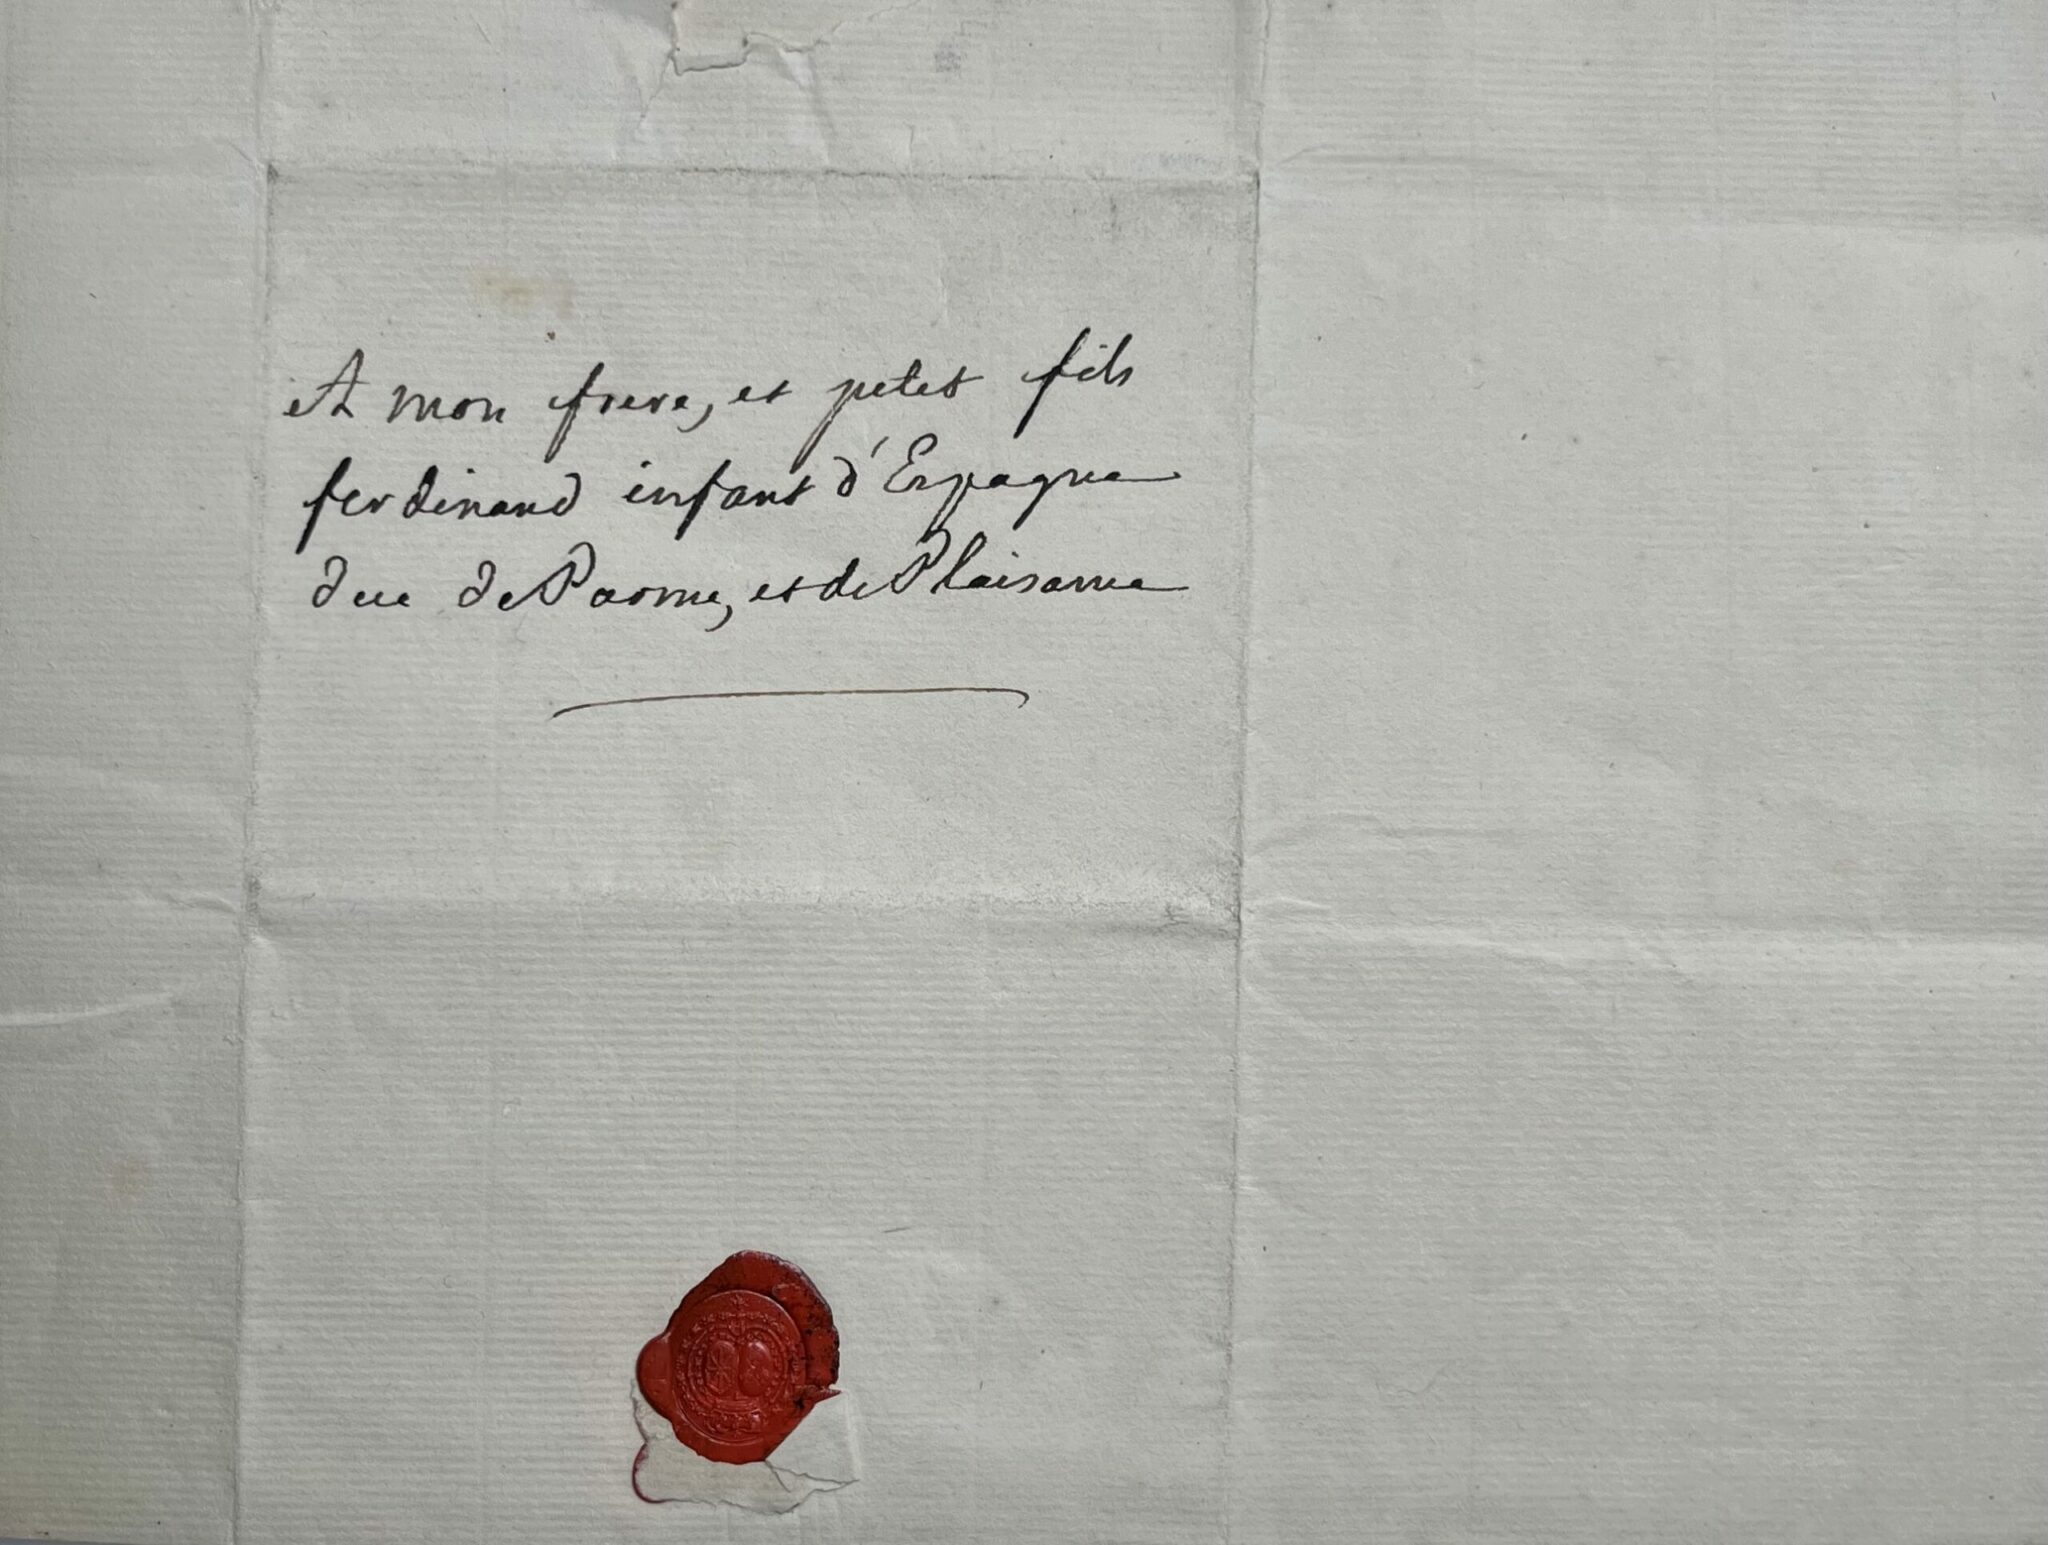 A mon frere, et petit fils
ferdinand infant d'Espagne
duc de Parme, et de Plaisance